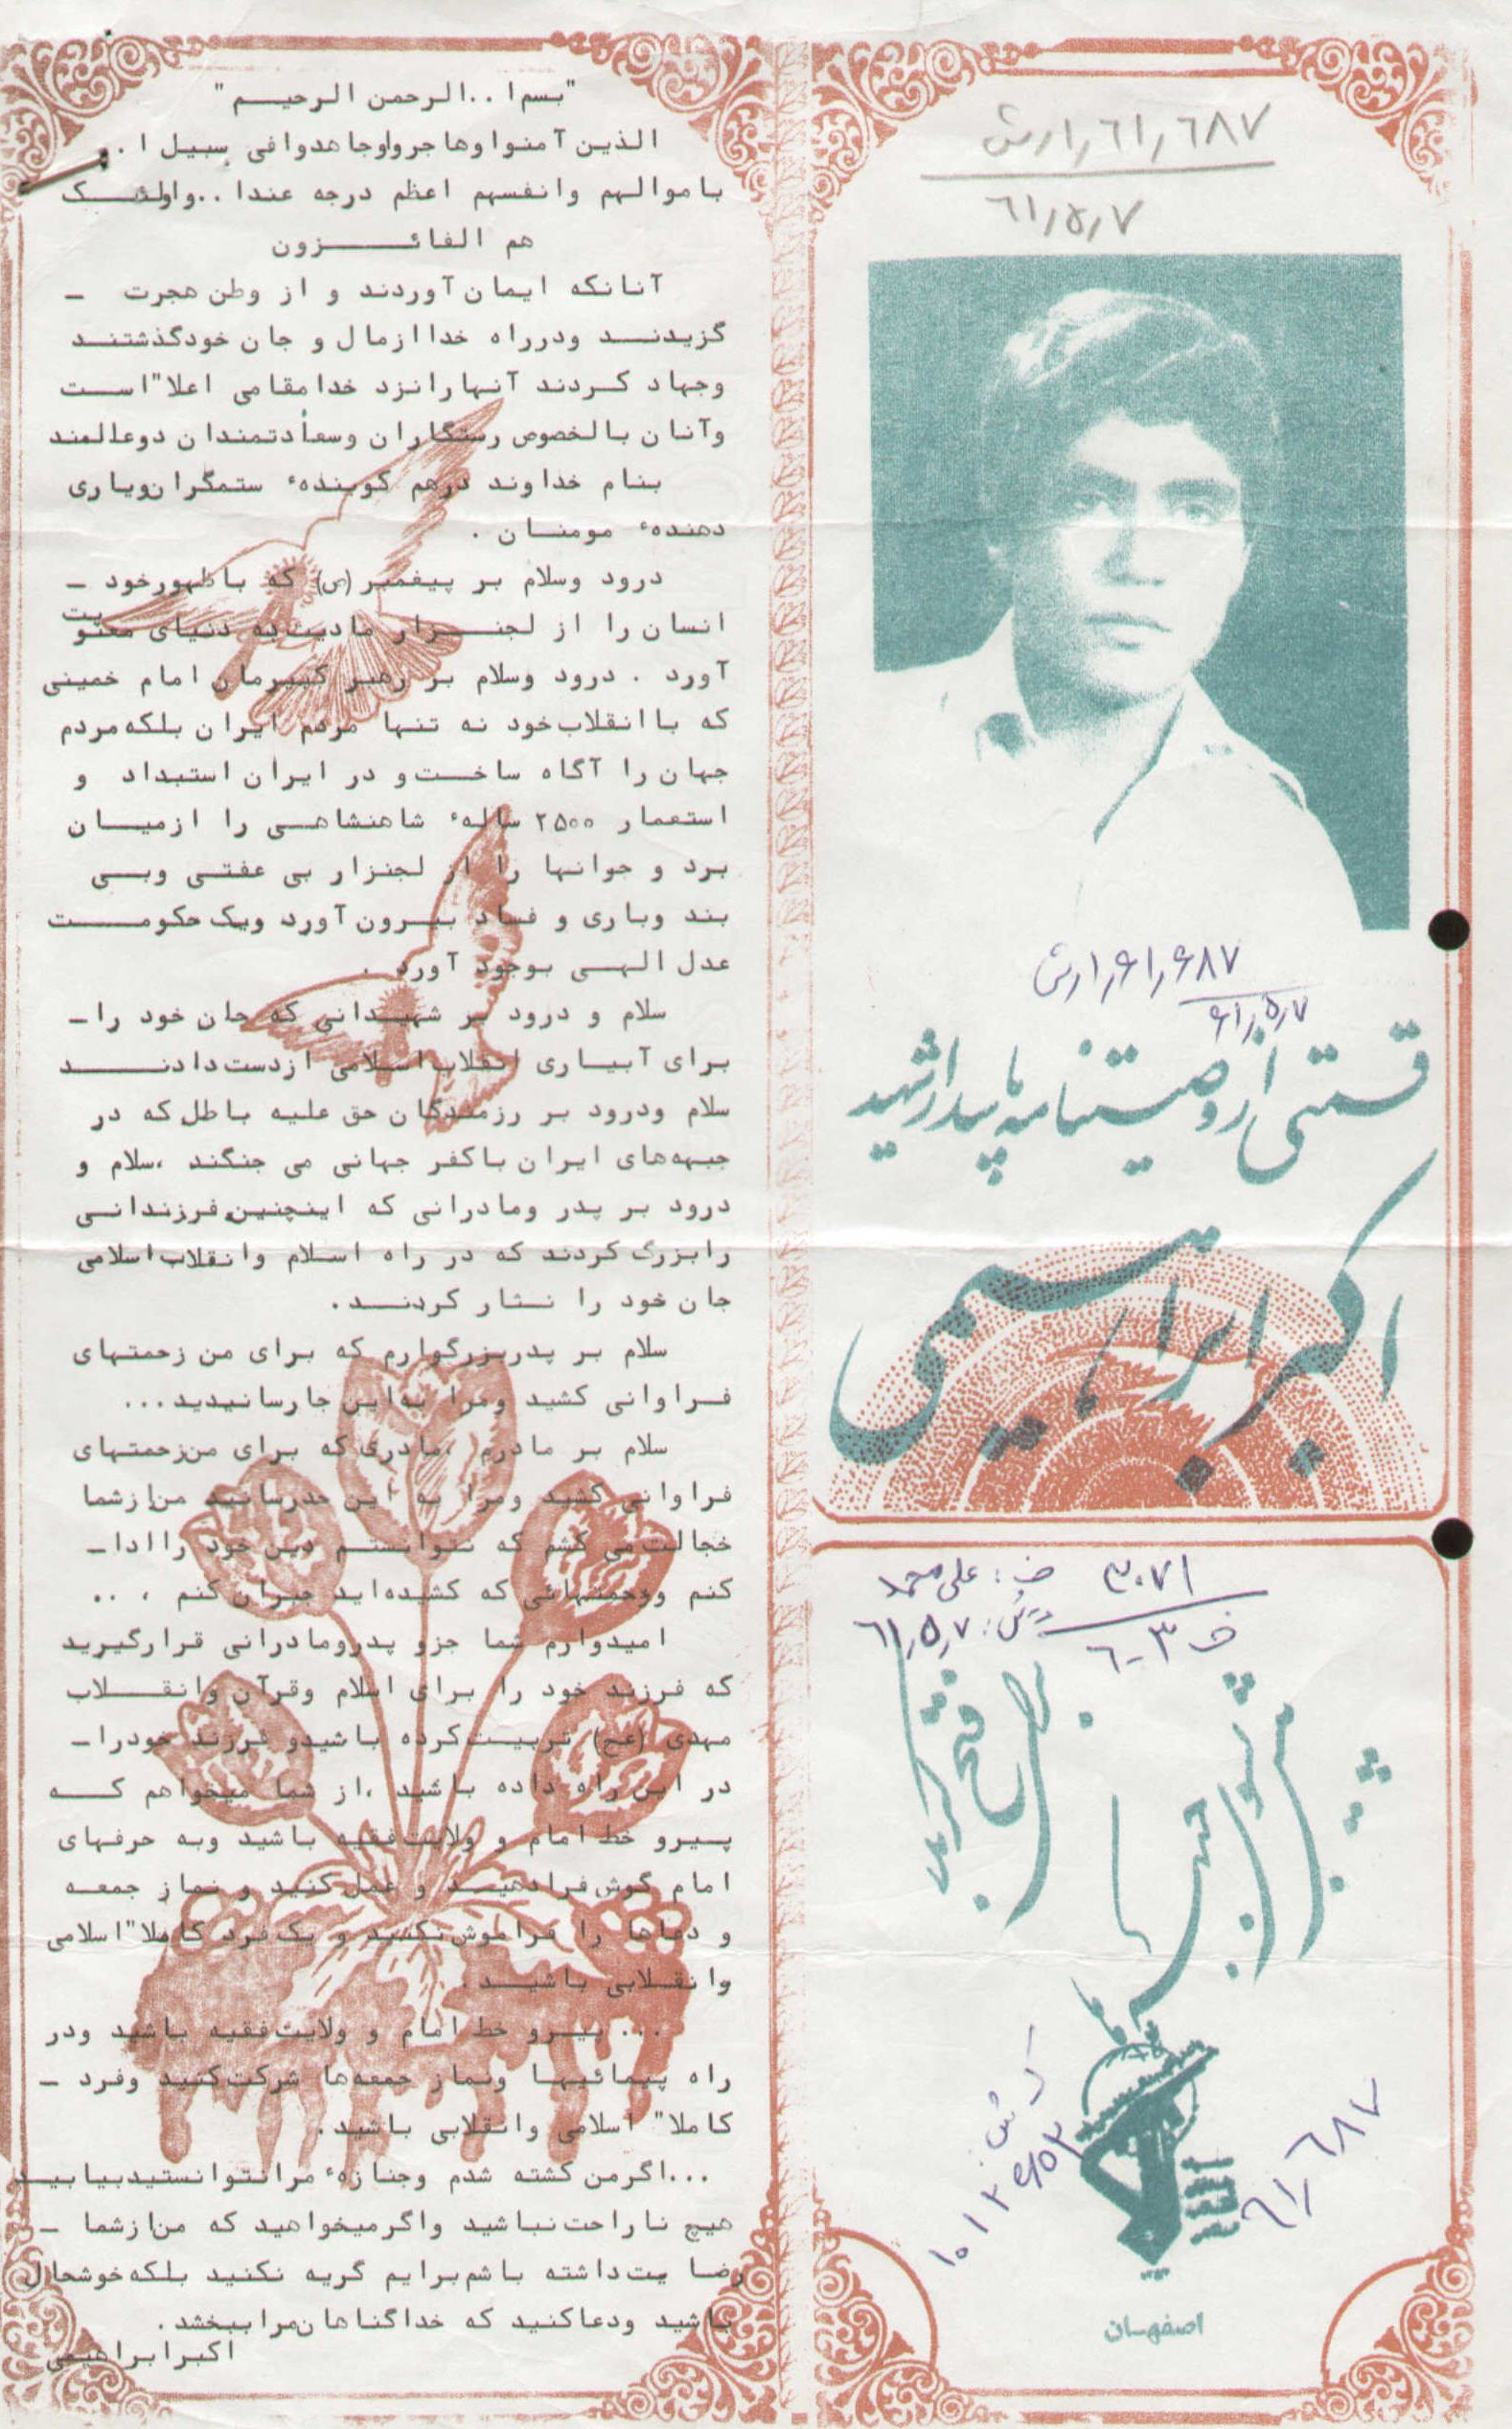 ۶۱٫۶۸۷
۶۱٫۵٫۷
۶۱٫۶۸۷
۶۱٫۵٫۷
قسمتی از وصیتنامه پاسدار شهید
اکبر ابراهیمی
۳۰۷۱
۶-۳
۶۱٫۵٫۷
۶۱٫۶۸۷
اصفهان
"بسم ا ..الرحمن الرحیم"
الذین آمنوا وهاجروا وجاهدوا فی سبیل ا ..
باموالهم وانفسهم اعظم درجه عندا ..واولئک
هم الفائزون
آنانکه ایمان آوردند و از وطن هجرت -
گزیدند ودرراه خدا ازمال و جان خودگذشتند
وجهاد کردند آنهارانزد خدا مقامی اعلا" است
وآنان بالخصوص رستگاران وسعادتمندان دوعالمند
بنام خداوند درهم کوبندهٔ ستمگران ویاری
دهندهٔ مومنان .
درود وسلام بر پیغمبر (ص) که باظهورخود -
انسان را از لجنزار مادیت به دنیای معنویت
آورد . درود وسلام بر رهبر کبیرمان امام خمینی
که باانقلاب خود نه تنها مردم ایران بلکه مردم
جهان را آگاه ساخت و در ایران استبداد و
استعمار ۲۵۰۰ سالهٔ شاهنشاهی را ازمیان
برد و جوانها را از لجنزار بی عفتی وبی
بند وباری و فساد بیرون آورد ویک حکومت
عدل الهی بوجود آورد .
سلام و درود بر شهیدانی که جان خود را-
برای آبیاری انقلاب اسلامی ازدست دادند
سلام ودرود بر رزمندگان حق علیه باطل که در
جبهه‌های ایران باکفر جهانی می جنگند ،سلام و
درود بر پدر ومادرانی که اینچنین فرزندانی
رابزرگ کردند که در راه اسلام وانقلاب اسلامی
جان خود را نثار کردند.
سلام بر پدربزرگوارم که برای من زحمتهای
فراوانی کشید ومرا به این جا رسانیدید...
سلام بر مادرم ،مادری که برای من زحمتهای
فراوانی کشید ومرا به این حدرسانید من ازشما
خجالت می کشم که نتوانستم دین خود را ادا-
کنم وزحمتهائی که کشیده‌اید جبران کنم ، ..
امیدوارم شما جزو پدرومادرانی قرارگیرید
که فرزند خود را برای اسلام وقرآن وانقلاب
مهدی (عج) تربیت کرده باشیدو فرزند خودرا-
در این راه داده باشید ،از شما میخواهم که
پیرو خط امام و ولایت فقیه باشید وبه حرفهای
امام گوش فرادهید و عمل کنید و نماز جمعه
و دعاها را فراموش نکنید و یک فرد کاملا" اسلامی
وانقلابی باشید .
... پیرو خط امام و ولایت فقیه باشید ودر
راه پیمائیها ونماز جمعه‌ها شرکت کنید وفرد -
کاملا" اسلامی وانقلابی باشید.
...اگرمن کشته شدم وجنازهٔ مرانتوانستیدبیابید
هیچ ناراحت نباشید واگرمیخواهید که من ازشما -
رضایت داشته باشم برایم گریه نکنید بلکه خوشحال
باشید ودعاکنید که خداگناهان مراببخشد.
اکبرابراهیمی